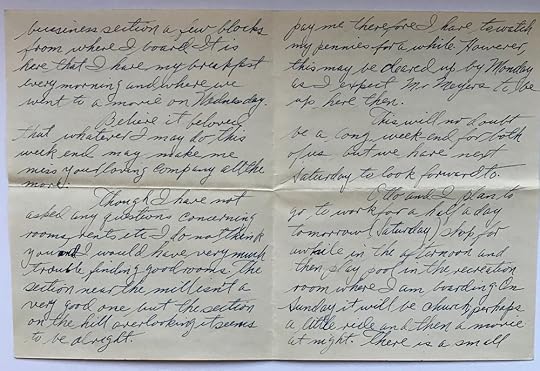 bussiness section a few blocks
from where I board. It is
here that I have my breakfast
every morning and where we
went to a movie on Wednesday.
Believe it beloved
that whatever I may do this
week end may make me
miss your loving company all the
more.
Though I have not
asked any questions concerning
rooms, rents etc I do not think
you and I would have very much
trouble finding good rooms, the
section near the mill isn't a
very good one but the section
on the hill overlooking it seems
to be alright.
pay me therefore I have to watch
my pennies for a while. However,
this may be cleared up by Monday
as I expect Mr Meyers to be
up here then.
This will no doubt
be a long week-end for both
of us but we have next
Saturday to look forward to.
Otto and I plan to
go to work for a half a day
tomorrow (Saturday) shop for
awhile in the afternoon and
then play pool in the recreation
room where I am boarding. On
Sunday it will be church, perhaps
a little ride and then a movie
at night. There is a small